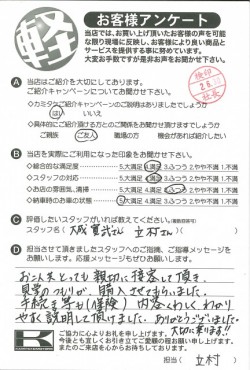 軽
お客様アンケート
当店では、お買い上げ頂いたお客様の声を可能
な限り現場に反映し、お客様により良い商品と
サービスを提供する事に努めています。
大変お手数ですが是非お声をお聞かせ下さい。
A 当店はご紹介を大切にしております。
ご紹介キャンペーンについてお聞かせ下さい。
はい いいえ
ご親族 ご友人 職場の方 機会があれば紹介したい
B 当店を実際にご利用になった印象をお聞かせ下さい。
◇総合的な満足度 5.大満足 4.満足 3.ふつう 2.やや不満 1.不満
◇スタッフの対応 5.大満足 4.満足 3.ふつう 2.やや不満 1.不満
◇お店の雰囲気、清掃 5.大満足 4.満足 3.ふつう 2.やや不満 1.不満
◇納車時のお車の状態 5.大満足 4.満足 3.ふつう 2.やや不満 1.不満
C 評価したいスタッフがいれば教えてください。
スタッフ名( さん 立村さん )
D 担当させて頂きましたスタッフへのご指摘、ご応援メッセージを
お願いします。応援メッセージもお願いします。
お二人とも とても親切に接客して頂き、
見学のつもりが、購入させてもらいました。
手続き等も(保険) 内容くわしく、わかり
やすく説明して頂けました。ありがとうございました。
大切に乗ります!!
ご協力に心よりお礼を申し上げます。
今後とも宜しくお引き立てご愛顧の程お願い申し上げます。
またのご来店を心からお待ちしております。
担当( 立村 )